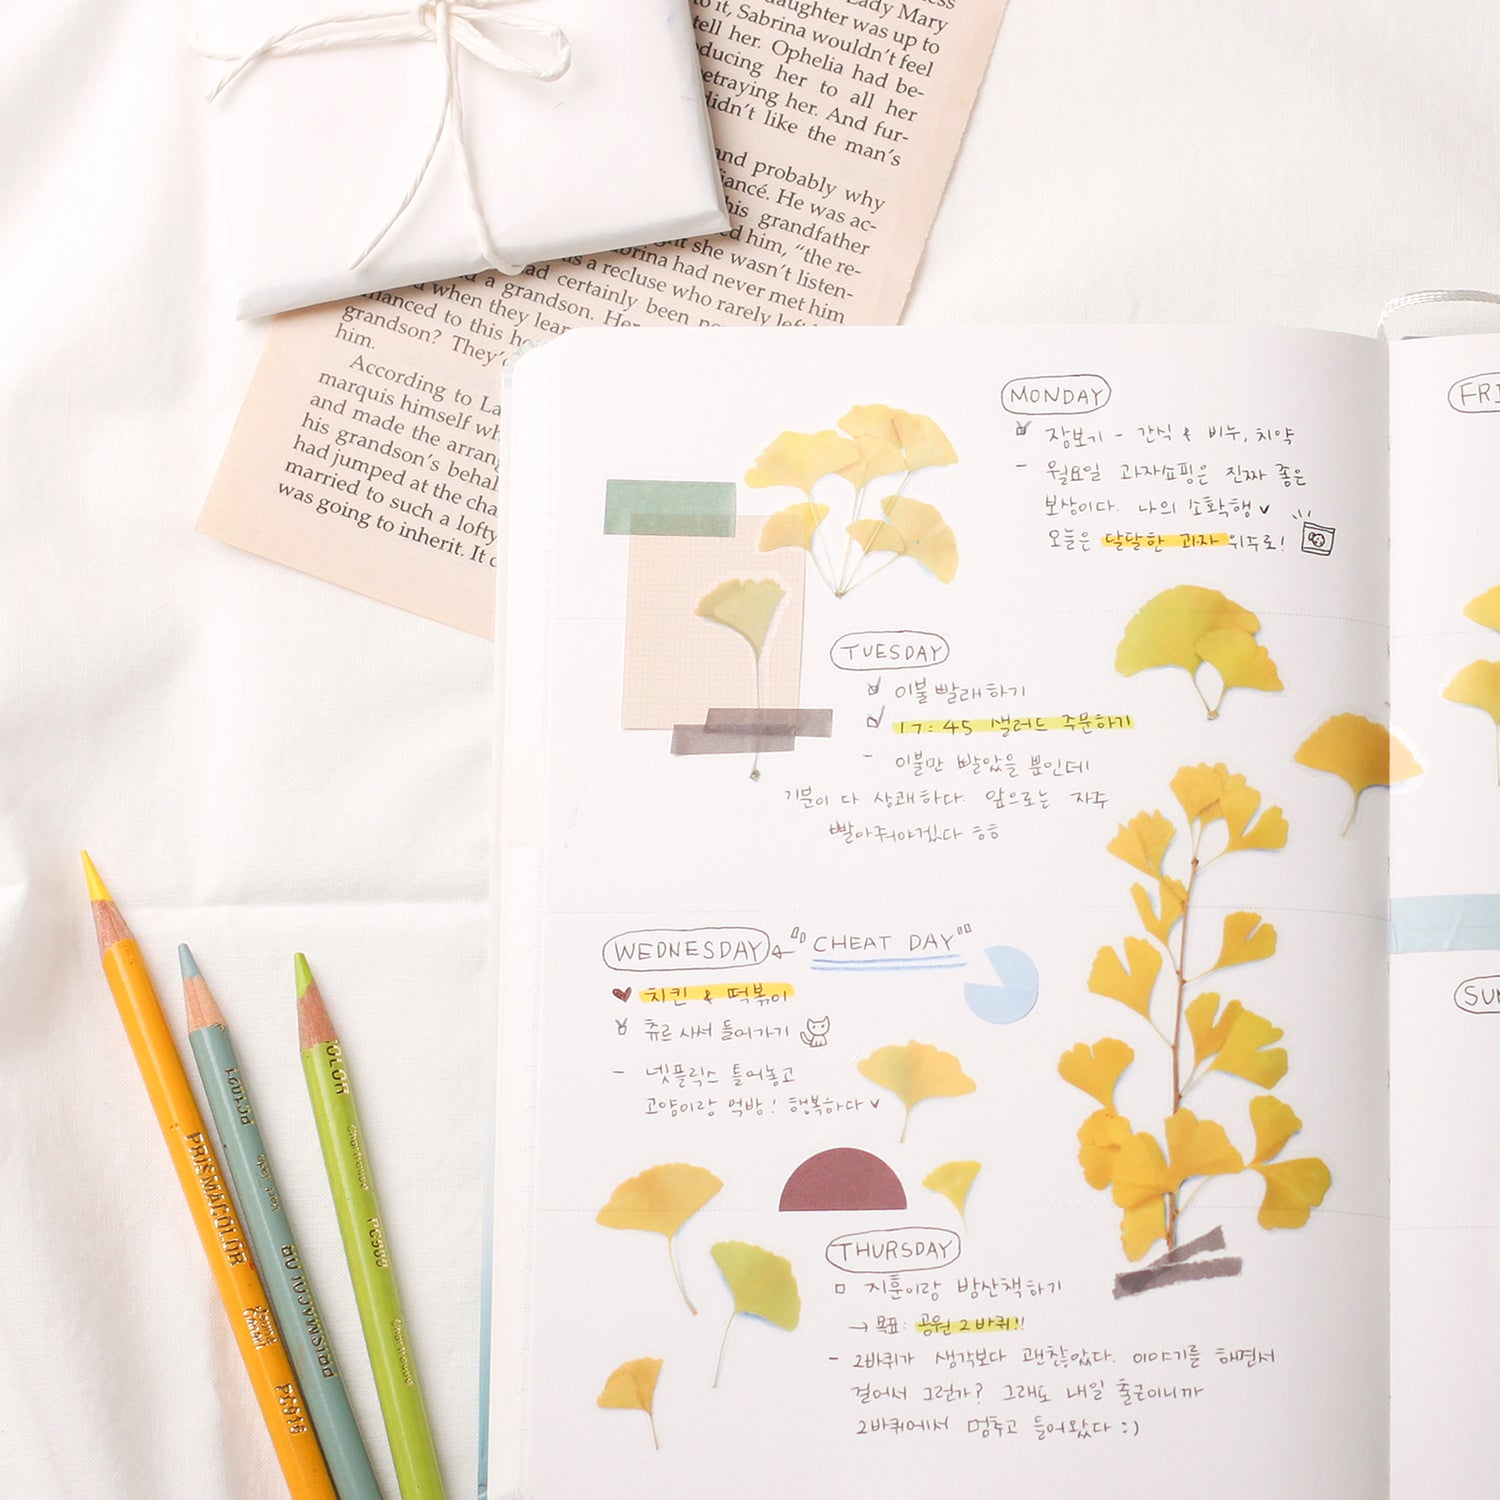 Lady Mary
daughter was up to
to it, Sabrina wouldn't feel
tell her. Ophelia had be-
ducing her to all her
etraying her. And fur-
didn't like the man's
and probably why
iancé. He was ac-
his grandfather
ed him, "the re-
she wasn't listen-
brina had never met him
as a recluse who rarely left
ad certainly been
d a grandson. Her
when they lear
hanced to this ho
grandson? They'd
him.
According to La
marquis himself wh
and made the arrang
his grandson's behal
had jumped at the cha
married to such a lofty
was going to inherit. It
MONDAY
장보기 - 간식 & 비누, 치약
- 월요일 과자쇼핑은 진짜 좋은
보상이다. 나의 소확행
오늘은 달달한 과자 위주로!
TUESDAY
이불 빨래하기
17:45 샐러드 주문하기
- 이불만 빨았을 뿐인데
기분이 다 상쾌하다. 앞으로는 자주
빨아줘야겠다 ㅎㅎ
WEDNESDAY ← "CHEAT DAY"
치킨 & 떡볶이
츄르 사서 들어가기
- 넷플릭스 틀어놓고
고양이랑 먹방! 행복하다
THURSDAY
지훈이랑 밤산책하기
→ 목표: 공원 2바퀴!!
- 2바퀴가 생각보다 괜찮았다. 이야기를 하면서
걸어서 그런가? 그래도 내일 출근이니까
2바퀴에서 멈추고 들어왔다 :)
FRI
SUN
PRISMACOLOR
PC916
PRISMACOLOR
PC1087
OLOR
Chartreuse
PC989
Chartreuse